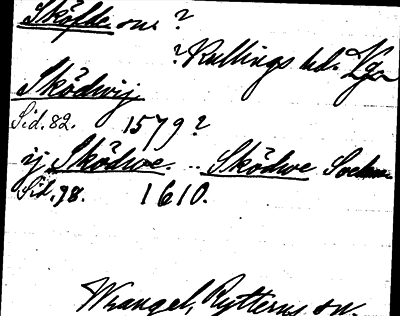 Sköfde sn. ?
? Kullings hd. Lgn
Sködwij
Sid. 82. 1579?
ij Sködwe. .. Sködwe Socken
Sid. 98. 1610.
Wrangel, Rytterns sn.